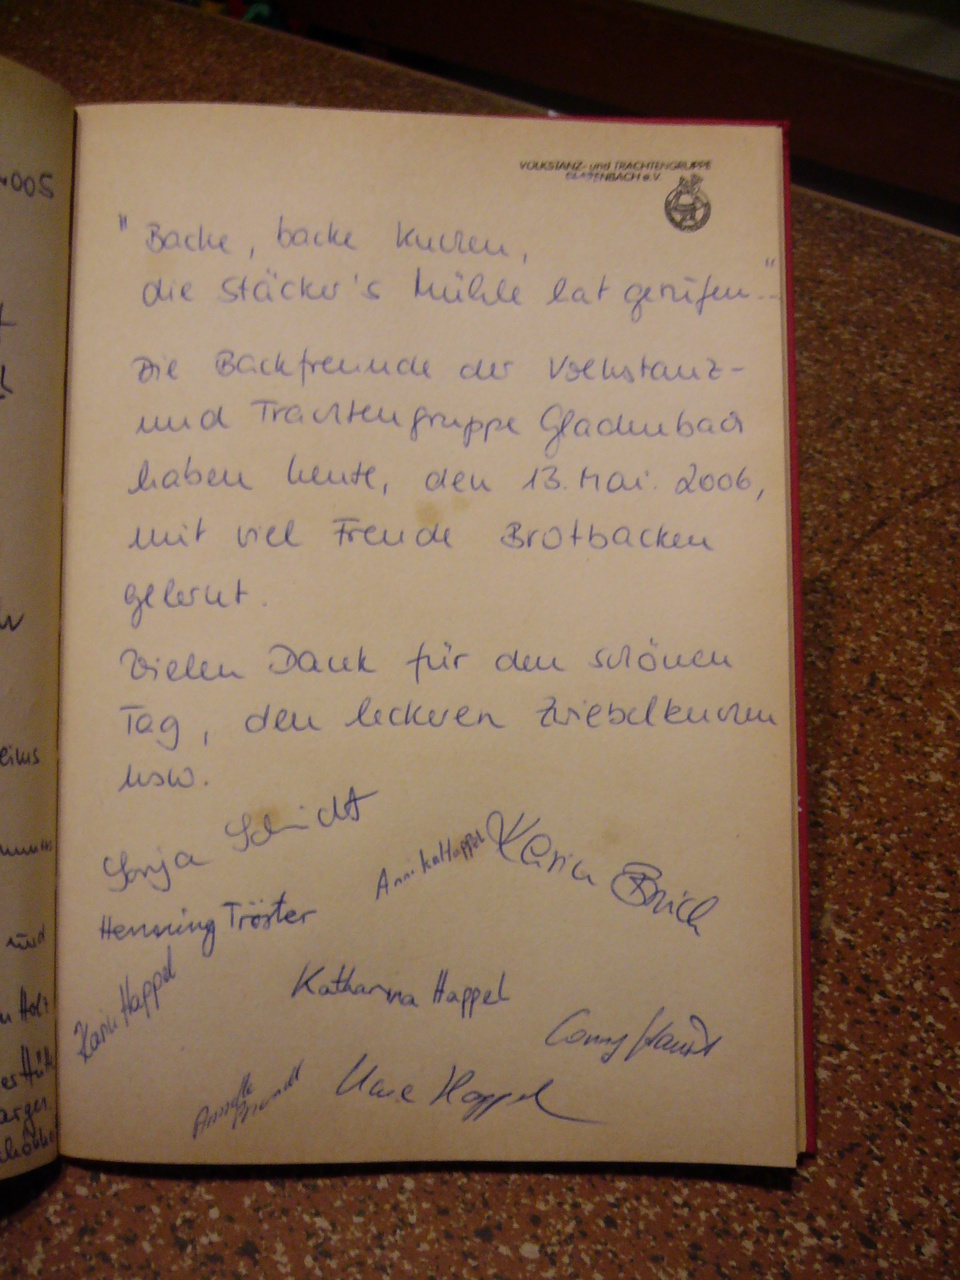 VOLKSTANZ- und TRACHTENGRUPPE
GLADENBACH e.V.
"Backe, backe Kuchen,
die Stäcker's Mühle hat gerufen..."
Die Backfreunde der Volkstanz-
und Trachtengruppe Gladenbach
haben heute, den 13. Mai. 2006,
mit viel Freude Brotbacken
gelernt.
Vielen Dank für den schönen
Tag, den leckeren Zwiebelkuchen
usw.
Sonja Schmidt
Annika Happel
Karin
Henning Tröster
Karin Happel
Katharina Happel
Conny
Annette
Uwe Happel